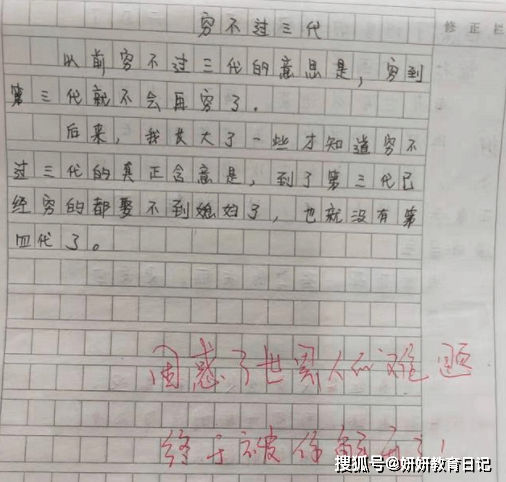 穷不过三代
修正栏
以前穷不过三代的意思是，穷到
第三代就不会再穷了.
后来，我长大了一些才知道穷不
过三代的真正含意是，到了第三代已
经穷的都娶不到媳妇了，也就没有第
四代了。
困惑了世界人的难题
终于被你解开了！
搜狐号@妍妍教育日记